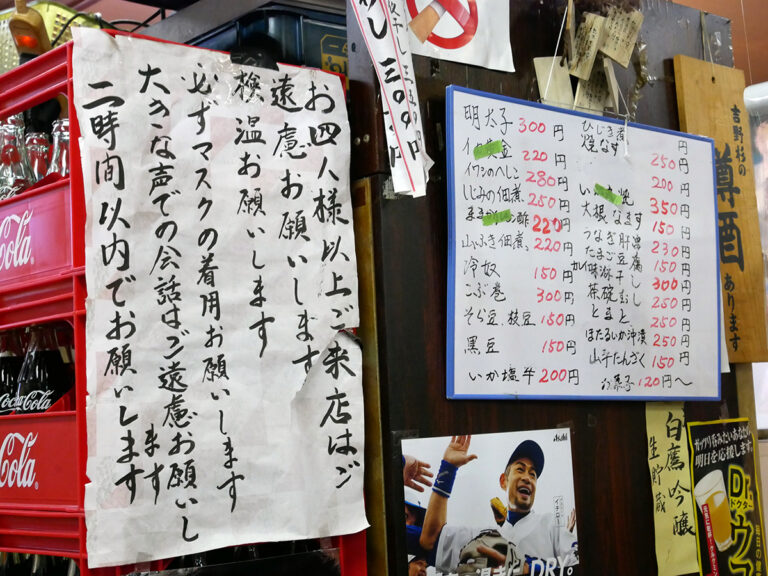 お四人様以上ご来店はご
遠慮お願いします
検温お願いします
必ずマスクの着用お願いします
大きな声での会話はご遠慮お願いし
ます
二時間以内でお願いします
明太子 300円
220円
イワシのへしこ 280円
しじみの佃煮 250円
酢 220円
山ふき佃煮 220円
冷奴 150円
こぶ巻 300円
そら豆、枝豆 150円
黒豆 150円
いか塩辛 200円
ひじき煮 円
焼なす 250円
200円
350円
大根なます 150円
うなぎ肝 230円
たまご豆腐 150円
味淋干し 300円
茶碗むし 250円
250円
ほたるいか沖漬 250円
山芋たんざく 150円
120円〜
吉野杉の
樽酒
あります
白鷹吟醸
生貯蔵
ガッツリ呑みたいあなたの、
明日を応援します。
Dr.
ドクター
ウコン
Coca-Cola
Cola
Cola
Asahi
イチロー
DRY.
三〇〇円